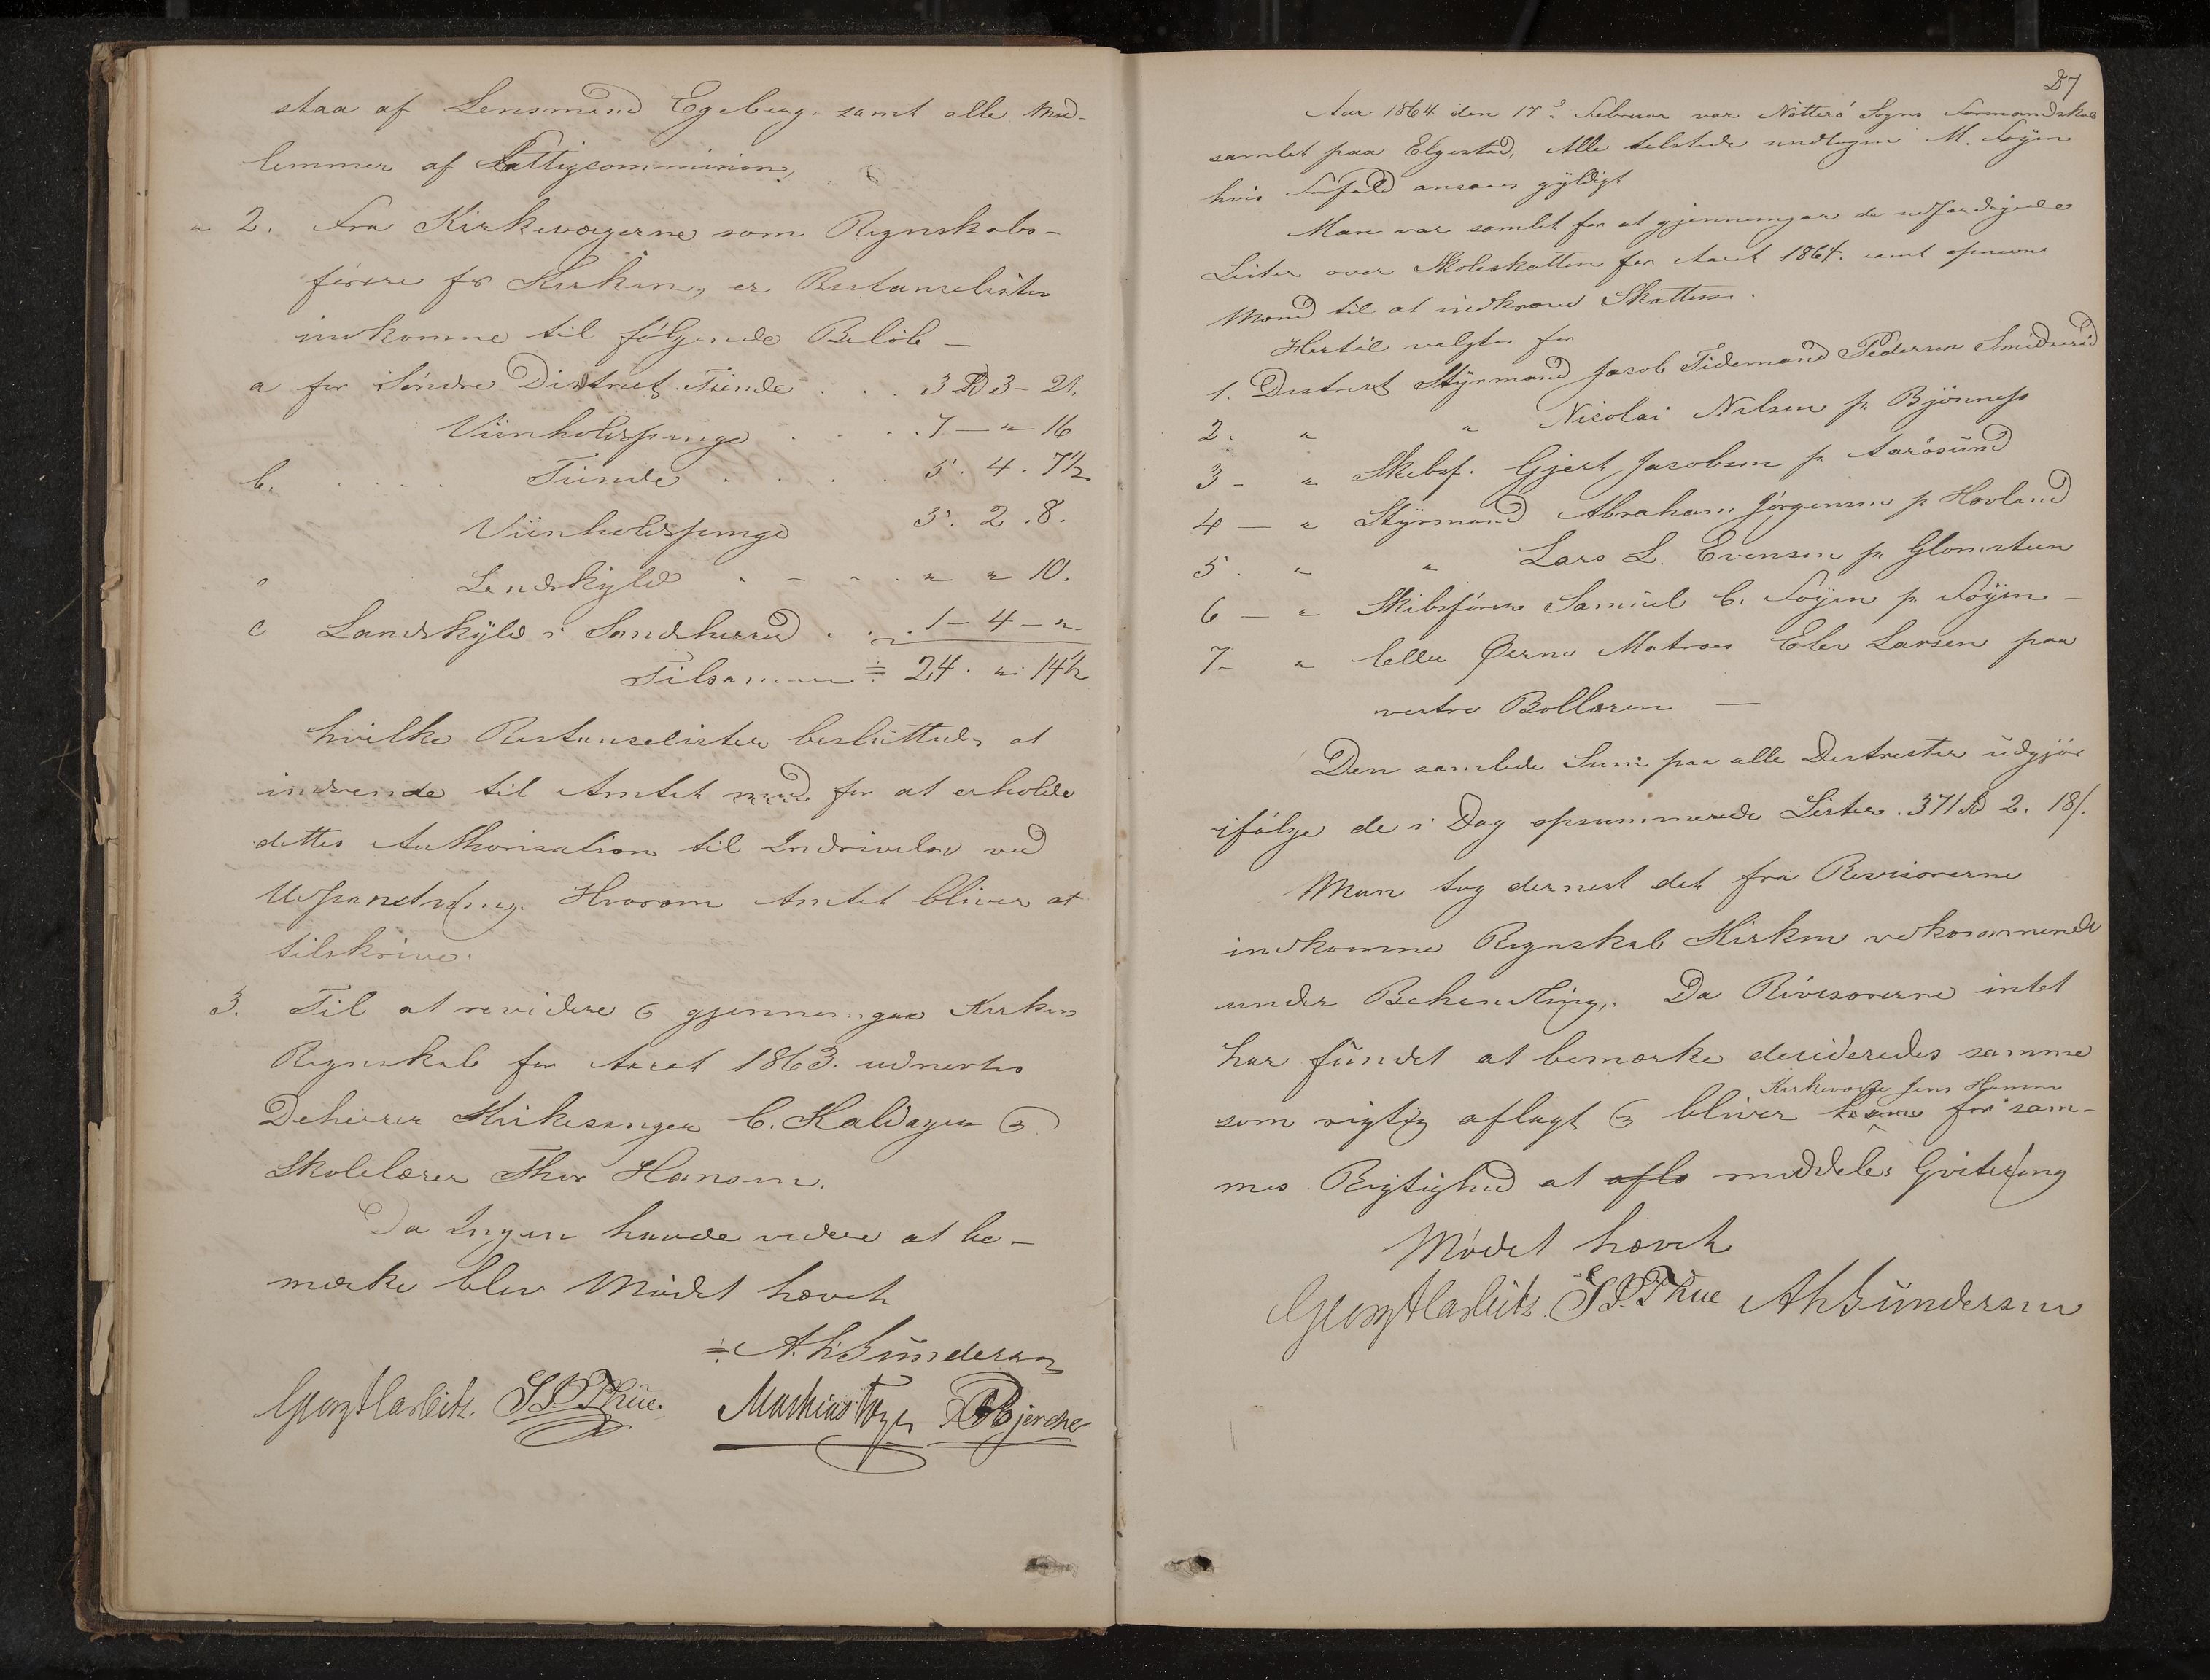 staa af Lensmand Egeberg. samt alle Med-
lemmer af Fattigcommision,
" 2. Fra Kirkeværgerne som Regnskabs-
førere for Kirken, er Restanselister
indkomne til følgende Beløb —
a for Søndre District Tiende . . . 3 Spd 3 - 21.
Viinholdspenge . . . . 7 — " 16
b. . . . . Tiende . . . . 5. 4. 7½
Viinholdspenge 5. 2. 8.
Landskyld . - - . " " 10.
c Landskyld i Sandherred . . 1 - 4 - "
Tilsammen ÷ 24. " 14½
hvilke Restanselister besluttedes at
indsende til Amtet for at erholde
dettes Authorisation til Inddrivelse ved
Udpantning. Hvorom Amtet bliver at
tilskrive.
3. Til at revidere & gjennemgaa Kirkens
Regnskab for Aaret 1863. udnevntes
Deherrer Kirkesanger C. Kaldager &
Skolelærer Thor Hansen.
Da Ingen havde videre at be-
mærke blev Mødet hævet
÷ A. H. Gundersen
Georg Harbitz. S. P. Thue. Mathias Føyen Bjerche
27
Aar 1864 den 17d Februar var Nøtterø Sogns Formandskab
samlet paa Elgestad, Alle tilstede undtagen M. Føyen
hvis Forfald ansaaes gyldigt
Man var samlet for at gjennemgaa de udfærdigede
Lister over Skoleskatten for Aaret 1864. samt opnevne
Mænd til at indkræve Skatten.
Hertil valgtes for
1. District Styrmand Jacob Tidemand Pedersen Smidsrød
2. " " Nicolai Nilsen p. Bjønness
3 - " Skibsf. Gjert Jacobsen p. Aarøsund
4 — " Styrmand Abraham Jørgensen p. Hovland
5. " " Lars L. Evensen p. Glomsteen
6 — " Skibsfører Samuel C. Føyen p. Føyen —
7 - " eller Øerne Matros Elev Larsen paa
vestre Bollæren —
Den samlede Sum paa alle Districter udgjør
ifølge de i Dag opsummerede Lister. 371 Spd 2. 18/.
Man tog dernest det fra Revisorerne
indkomne Regnskab Kirken vedkommende
under Behandling,. Da Revisorerne intet
har fundet at bemærke desideredes samme
Kirkeværge Jens Hansen
som rigtig aflagt & bliver for sam-
mes Rigtighed at afls meddeles Qvitering
Mødet hævet
Georg Harbitz. S. P. Thue A H Gundersen